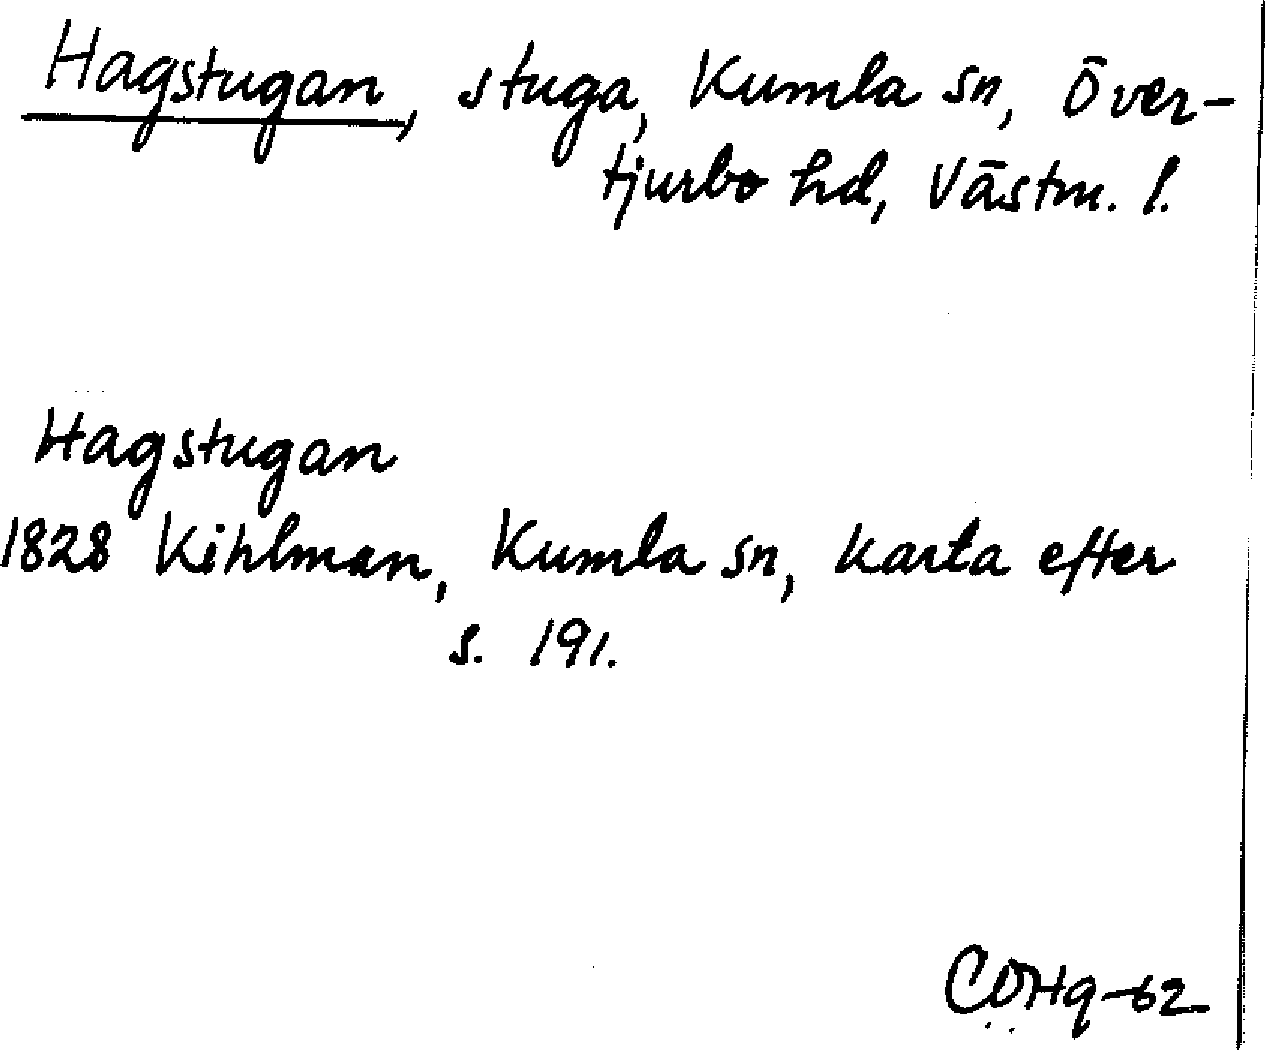 Hagstugan, stuga, Kumla sn, Över-
tjurbo hd, Västm. l.
Hagstugan
1828 Kihlman, Kumla sn, karta efter
s. 191.